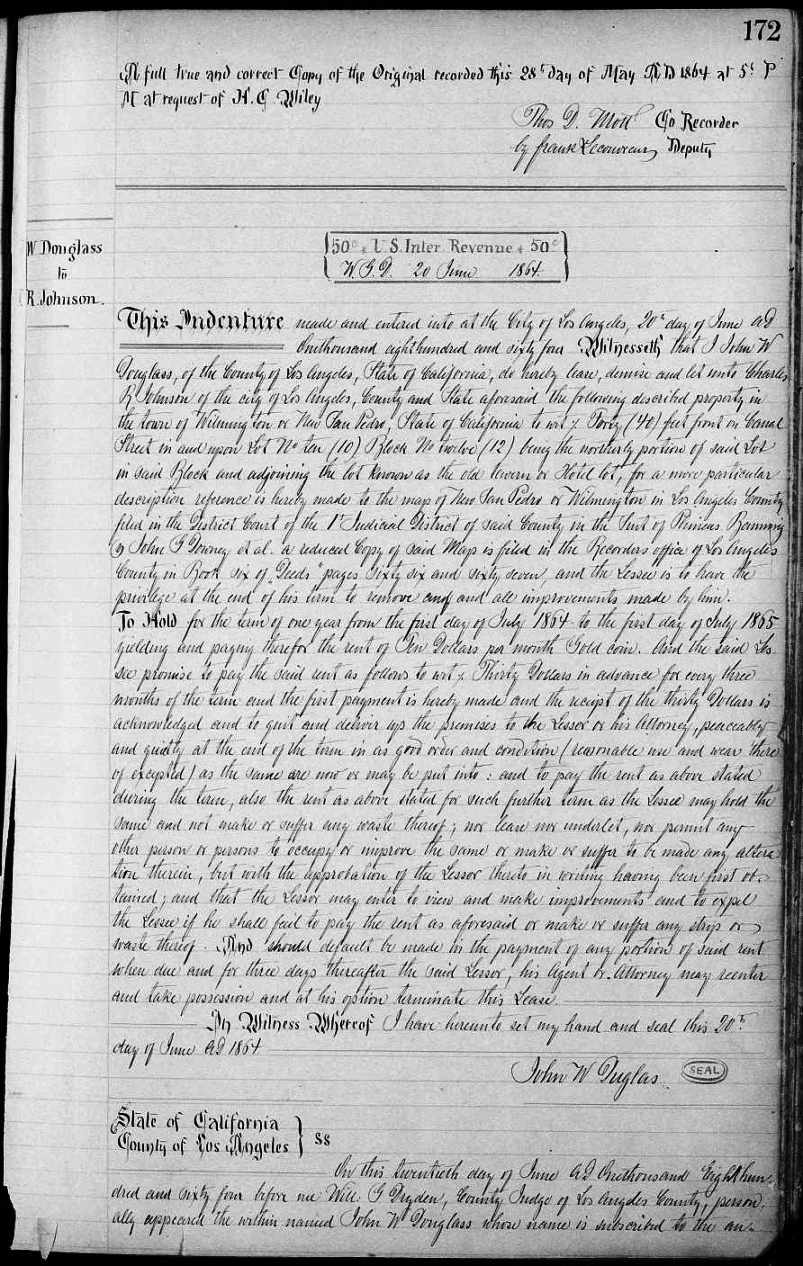 172
A full true and correct Copy of the Original recorded this 28th day of May AD 1864 at 5h P
M at request of H. C. Wiley
Thos D. Mott Co Recorder
by Frank Lecouvreur Deputy
W Douglass
to
R. Johnson.
50c U S. Inter. Revenue 50c
W. G. D. 20 June 1864
This Indenture made and entered into at the City of Los Angeles, 20th day of June AD
Onethousand eighthundred and sixty four Witnesseth that I John W
Douglass, of the County of Los Angeles, State of California, do hereby lease, demise and let unto Charles
R Johnson of the city of Los Angeles, County and State aforesaid the following described property in
the town of Wilmington or New San Pedro, State of California to wit: Forty (40) feet front on Canal
Street in and upon Lot No ten (10) Block No twelve (12) being the northerly portion of said Lot
in said Block and adjoining the lot known as the old tavern or Hotel lot, for a more particular
description reference is hereby made to the map of New San Pedro or Wilmington in Los Angeles County
filed in the District Court of the 1st Judicial District of said County in the Suit of Phineas Banning
vs John G Downey et al. a reduced Copy of said Map is filed in the Recorders office of Los Angeles
County in Book six of "Deeds" pages sixty six and sixty seven, and the Lessee is to have the
privilege at the end of his term to remove any and all improvements made by him.
To Hold for the term of one year from the first day of July 1864 to the first day of July 1865
yielding and paying therefor the rent of Ten Dollars per month Gold coin. And the said Les
see promise to pay the said rent as follows to wit: Thirty Dollars in advance for every three
months of the term and the first payment is hereby made and the receipt of the thirty Dollars is
acknowledged and to quit and deliver up the premises to the Lessor or his Attorney, peaceably
and quietly at the end of the term in as good order and condition (reasonable use and wear there
of excepted) as the same are now or may be put into: and to pay the rent as above stated
during the term, also the rent as above stated for such further term as the Lessee may hold the
same and not make or suffer any waste thereof; nor lease nor underlet, nor permit any
other person or persons to occupy or improve the same or make or suffer to be made any altera
tion therein, but with the approbation of the Lessor thereto in writing having been first ob-
tained; and that the Lessor may enter to view and make improvements and to expel
the Lessee if he shall fail to pay the rent as aforesaid or make or suffer any strip or
waste thereof. And should default be made in the payment of any portion of said rent
when due and for three days thereafter the said Lessor, his Agent or Attorney may reenter
and take possession and at his option terminate this Lease.
In Witness Whereof I have hereunto set my hand and seal this 20th
day of June AD 1864
John W Duglas SEAL
State of California
County of Los Angeles } SS
On this twentieth day of June AD Onethousand Eighthun-
dred and sixty four before me Will: G Dryden, County Judge of Los Angeles County, person,
ally appeared the within named John W Douglass whose name is subscribed to the an-